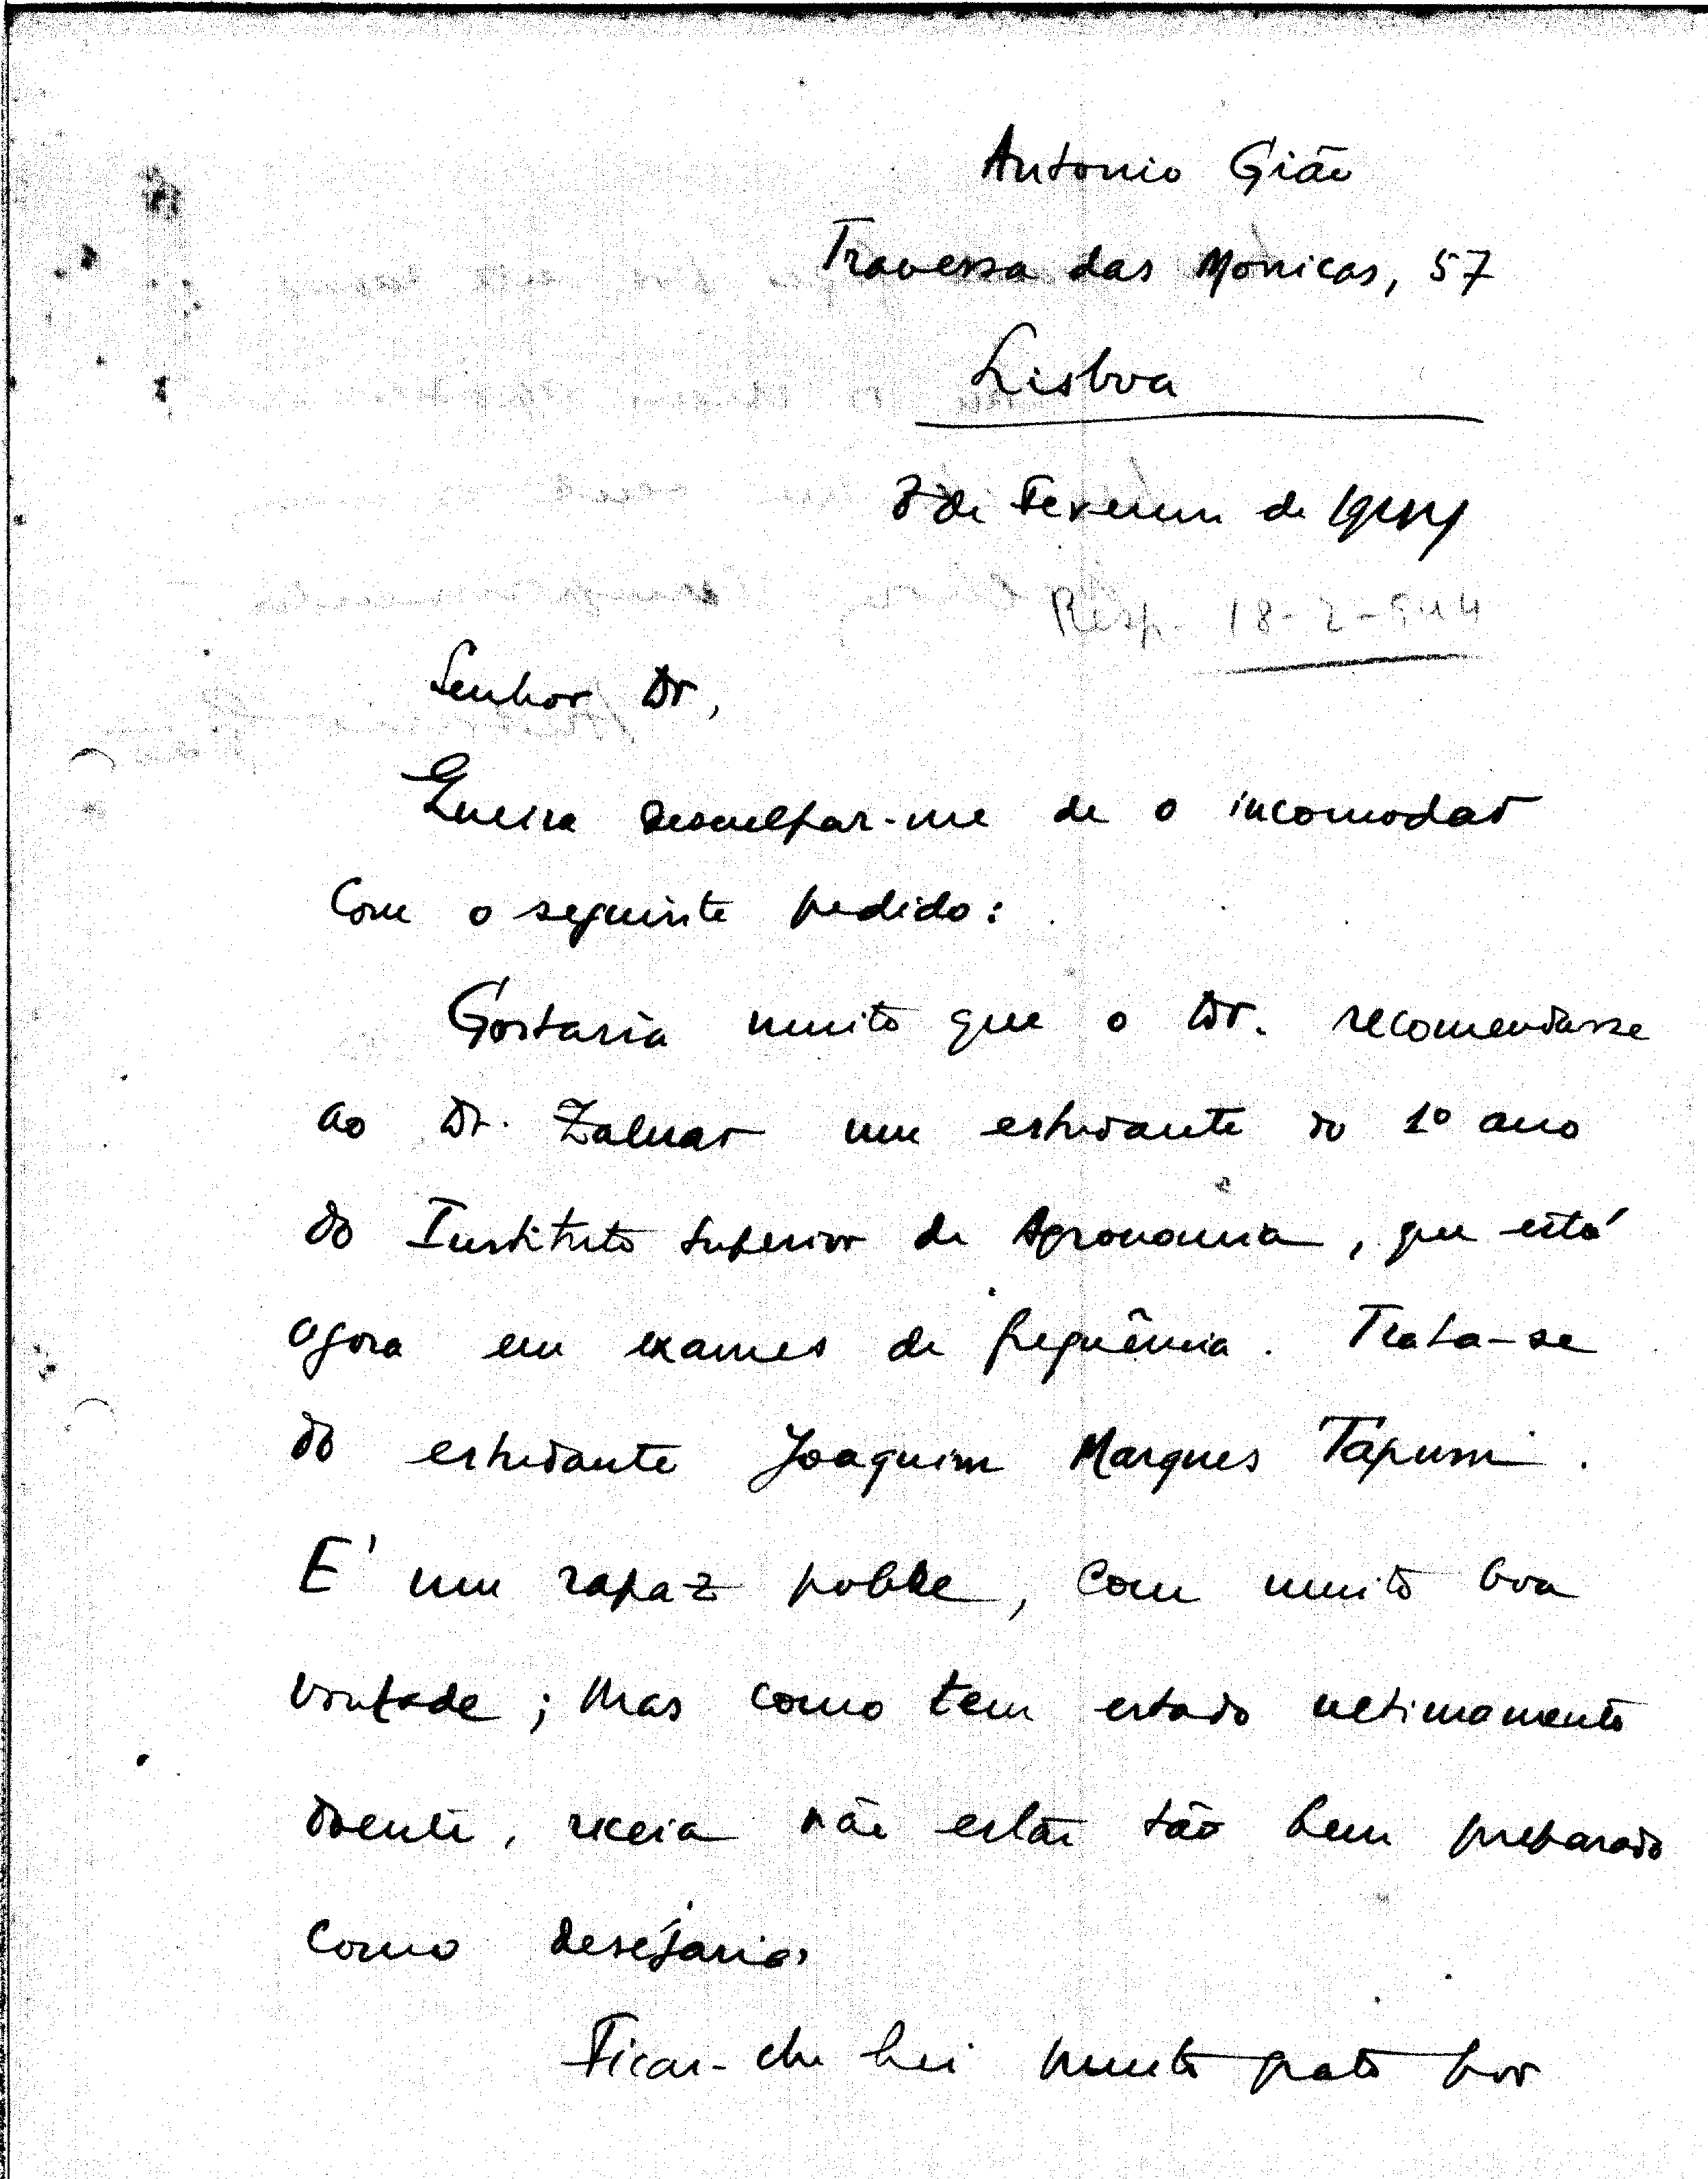 Antonio Gião
Travessa das Mónicas, 57
Lisboa
de Fevereiro de 1944
Resp. 18-2-944
Senhor Dr,
Queira desculpar-me de o incomodar
com o seguinte pedido:
Gostaria muito que o Dr. recomendasse
ao Dr. Zaluar um estudante do 1º ano
do Instituto Superior de Agronomia, que está
agora em exames de frequência. Trata-se
do estudante Joaquim Marques
E' um rapaz pobre, com muito boa
vontade; mas como tem estado ultimamente
doente, receia não estar tão bem preparado
como desejaria.
Ficar-lhe hei muito grato por